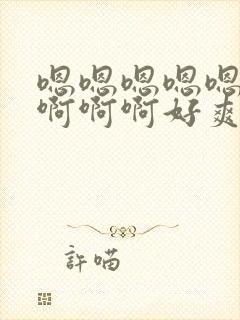 嗯嗯嗯嗯嗯
啊啊啊好爽
許喵